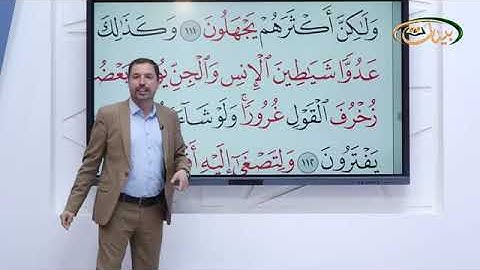 وَلَٰكِنَّ أَكْثَرَهُمْ يَجْهَلُونَ ١١١ وَكَذَٰلِكَ
عَدُوًّا شَيَٰطِينَ ٱلْإِنسِ وَٱلْجِنِّ
زُخْرُفَ ٱلْقَوْلِ غُرُورًا ۚ وَلَوْ شَآءَ
يَفْتَرُونَ ١١٢ وَلِتَصْغَىٰٓ إِلَيْهِ